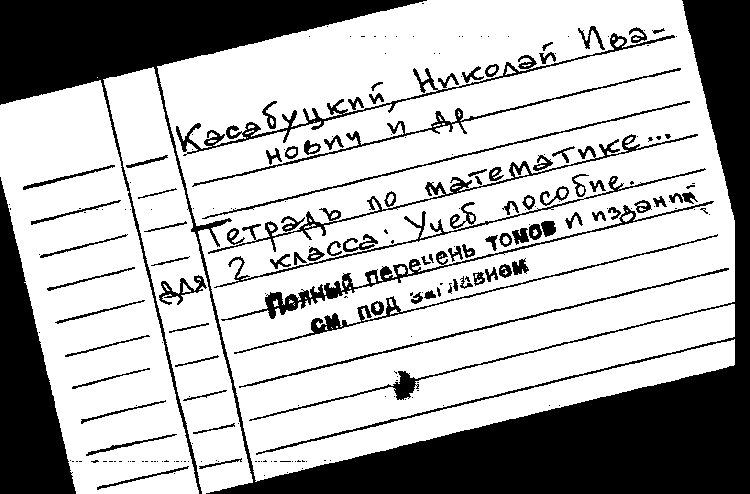 Касабуцкий, Николай Ива-
нович и др.
Тетрадь по математике...
для 2 класса: Учеб. пособие.
Полный перечень томов и изданий
см. под заглавием